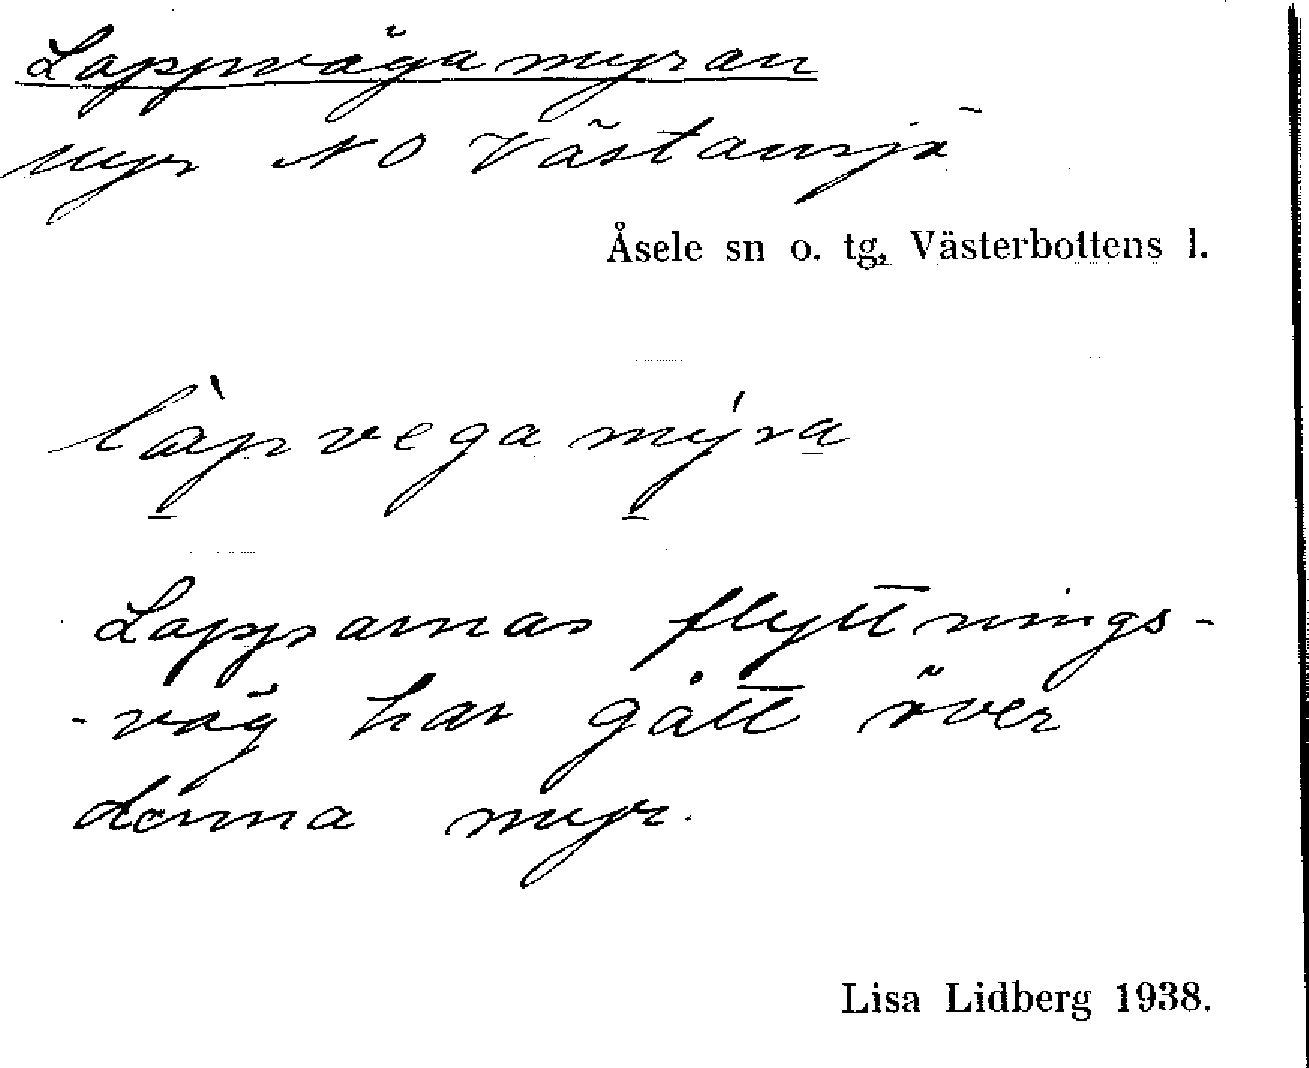 Lappvägamyran
Myr NO Västansjö
Åsele sn o. tg, Västerbottens l.
làpvegamýra
Lapparnas flyttnings-
-väg har gått över
denna myr.
Lisa Lidberg 1938.